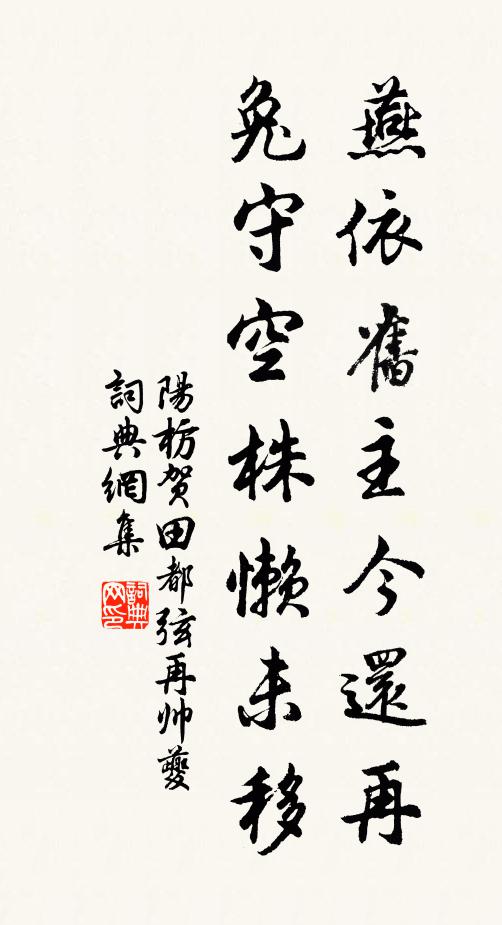 燕依舊主今還再
兔守空株懶未移
陽枋贺田都弦再帅夔
詞典網集
詞典网印